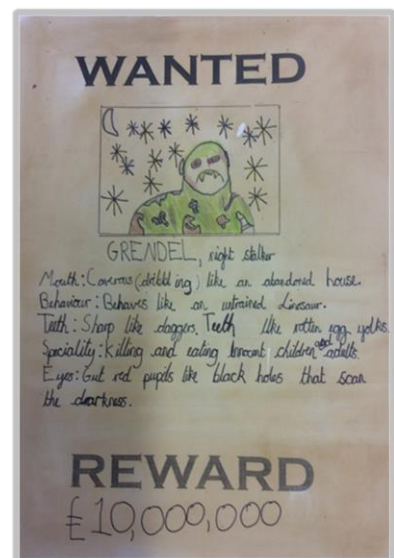 WANTED
GRENDEL, night stalker
Mouth: Caverous (dribbling) like an abandoned house.
Behaviour: Behaves like an untrained dinosaur.
Teeth: Sharp like daggers. Teeth like rotten egg yolks.
Speciality: Killing and eating innocent children and adults.
Eyes: Gut red pupils like black holes that scan
the darkness.
REWARD
£10,000,000